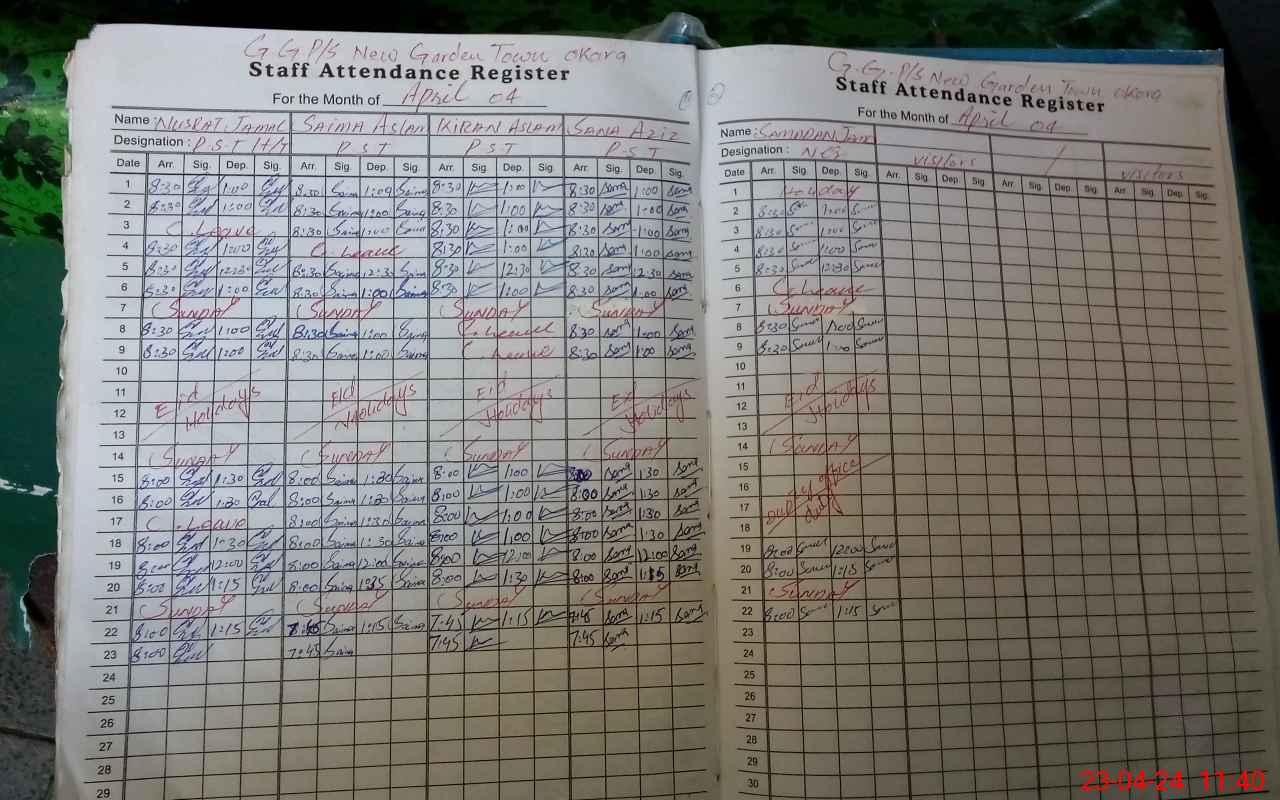 G.G.P/S New Garden Town okara
Staff Attendance Register
For the Month of April 04
Name : NUSRAT JAMAL SAIMA ASLAM KIRAN ASLAM SANA AZIZ
Designation : P.S.T H/T P.S.T P.S.T P.S.T
Date Arr. Sig. Dep. Sig. Arr. Sig. Dep. Sig. Arr. Sig. Dep. Sig. Arr. Sig. Dep. Sig.
1 8:30 1:00 8:30 Saima 1:00 Saima 8:30 1:00 8:30 Sana 1:00 Sana
2 8:30 1:00 8:30 Saima 1:00 Saima 8:30 1:00 8:30 Sana 1:00 Sana
3 C.Leave 8:30 Saima 1:00 Saima 8:30 1:00 8:30 Sana 1:00 Sana
4 8:30 1:00 C.Leave 8:30 1:00 8:30 Sana 1:00 Sana
5 8:30 12:30 8:30 Saima 12:30 Saima 8:30 12:30 8:30 Sana 12:30 Sana
6 8:30 1:00 8:30 Saima 1:00 Saima 8:30 1:00 8:30 Sana 1:00 Sana
7 SUNDAY SUNDAY SUNDAY SUNDAY
8 8:30 1:00 8:30 Saima 1:00 Saima C.Leave 8:30 Sana 1:00 Sana
9 8:30 1:00 8:30 Saima 1:00 Saima C.Leave 8:30 Sana 1:00 Sana
10
11 Eid Eid Eid Eid
12 Holidays Holidays Holidays Holidays
13
14 SUNDAY SUNDAY SUNDAY SUNDAY
15 8:00 1:30 8:00 Saima 1:30 Saima 8:00 1:00 8:00 Sana 1:30 Sana
16 8:00 1:30 8:00 Saima 1:30 Saima 8:00 1:00 8:00 Sana 1:30 Sana
17 C.Leave 8:00 Saima 1:30 Saima 8:00 1:00 8:00 Sana 1:30 Sana
18 8:00 1:30 8:00 Saima 1:30 Saima 8:00 1:00 8:00 Sana 1:30 Sana
19 8:00 12:00 8:00 Saima 12:00 Saima 8:00 12:00 8:00 Sana 12:00 Sana
20 8:00 1:15 8:00 Saima 1:15 Saima 8:00 1:30 8:00 Sana 1:15 Sana
21 SUNDAY SUNDAY SUNDAY SUNDAY
22 8:00 1:15 7:45 Saima 1:15 Saima 7:45 1:15 7:45 Sana 1:15 Sana
23 8:00 7:45 Saima 7:45 7:45 Sana
24
25
26
27
28
29
G.G.P/S New Garden Town okara
Staff Attendance Register
For the Month of April 04
Name :
Designation : visitors visitors
Date Arr. Sig. Dep. Sig. Arr. Sig. Dep. Sig. Arr. Sig. Dep. Sig. Arr. Sig. Dep. Sig.
1 Holiday
2 8:30 1:00
3 8:30 1:00
4 8:30 1:00
5 8:30 12:30
6 C.Leave
7 SUNDAY
8 8:30 1:00
9 8:30 1:00
10
11 Eid
12 Holidays
13
14 SUNDAY
15
16 office
17 duty
18
19 8:00 12:00
20 8:00 1:15
21 SUNDAY
22 8:00 1:15
23
24
25
26
27
28
29
30
23-04-24 11:40